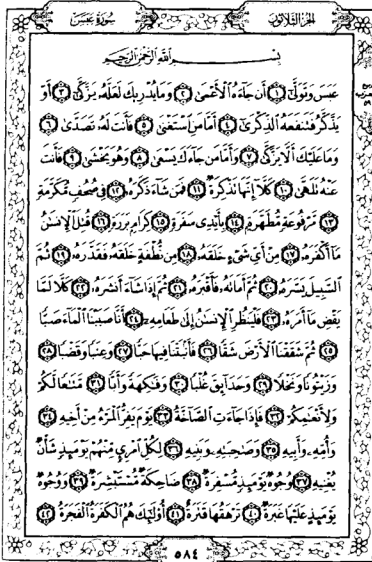 الجزء الثلاثون
سورة عبس
بسم الله الرحمن الرحيم
عَبَسَ وَتَوَلَّىٰٓ ١ أَن جَآءَهُ ٱلْأَعْمَىٰ ٢ وَمَا يُدْرِيكَ لَعَلَّهُۥ يَزَّكَّىٰٓ ٣ أَوْ
يَذَّكَّرُ فَتَنفَعَهُ ٱلذِّكْرَىٰٓ ٤ أَمَّا مَنِ ٱسْتَغْنَىٰ ٥ فَأَنتَ لَهُۥ تَصَدَّىٰ ٦
وَمَا عَلَيْكَ أَلَّا يَزَّكَّىٰ ٧ وَأَمَّا مَن جَآءَكَ يَسْعَىٰ ٨ وَهُوَ يَخْشَىٰ ٩ فَأَنتَ
عَنْهُ تَلَهَّىٰ ١٠ كَلَّآ إِنَّهَا تَذْكِرَةٌ ١١ فَمَن شَآءَ ذَكَرَهُۥ ١٢ فِى صُحُفٍ مُّكَرَّمَةٍ
١٣ مَّرْفُوعَةٍ مُّطَهَّرَةٍۭ ١٤ بِأَيْدِى سَفَرَةٍ ١٥ كِرَامٍۭ بَرَرَةٍ ١٦ قُتِلَ ٱلْإِنسَٰنُ
مَآ أَكْفَرَهُۥ ١٧ مِنْ أَىِّ شَىْءٍ خَلَقَهُۥ ١٨ مِن نُّطْفَةٍ خَلَقَهُۥ فَقَدَّرَهُۥ ١٩ ثُمَّ
ٱلسَّبِيلَ يَسَّرَهُۥ ٢٠ ثُمَّ أَمَاتَهُۥ فَأَقْبَرَهُۥ ٢١ ثُمَّ إِذَا شَآءَ أَنشَرَهُۥ ٢٢ كَلَّا لَمَّا
يَقْضِ مَآ أَمَرَهُۥ ٢٣ فَلْيَنظُرِ ٱلْإِنسَٰنُ إِلَىٰ طَعَامِهِۦٓ ٢٤ أَنَّا صَبَبْنَا ٱلْمَآءَ صَبًّا
٢٥ ثُمَّ شَقَقْنَا ٱلْأَرْضَ شَقًّا ٢٦ فَأَنۢبَتْنَا فِيهَا حَبًّا ٢٧ وَعِنَبًا وَقَضْبًا ٢٨
وَزَيْتُونًا وَنَخْلًا ٢٩ وَحَدَآئِقَ غُلْبًا ٣٠ وَفَٰكِهَةً وَأَبًّا ٣١ مَّتَٰعًا لَّكُمْ
وَلِأَنْعَٰمِكُمْ ٣٢ فَإِذَا جَآءَتِ ٱلصَّآخَّةُ ٣٣ يَوْمَ يَفِرُّ ٱلْمَرْءُ مِنْ أَخِيهِ ٣٤
وَأُمِّهِۦ وَأَبِيهِ ٣٥ وَصَٰحِبَتِهِۦ وَبَنِيهِ ٣٦ لِكُلِّ ٱمْرِئٍ مِّنْهُمْ يَوْمَئِذٍ شَأْنٌ
يُغْنِيهِ ٣٧ وُجُوهٌ يَوْمَئِذٍ مُّسْفِرَةٌ ٣٨ ضَاحِكَةٌ مُّسْتَبْشِرَةٌ ٣٩ وَوُجُوهٌ
يَوْمَئِذٍ عَلَيْهَا غَبَرَةٌ ٤٠ تَرْهَقُهَا قَتَرَةٌ ٤١ أُو۟لَٰٓئِكَ هُمُ ٱلْكَفَرَةُ ٱلْفَجَرَةُ ٤٢
٥٨٤